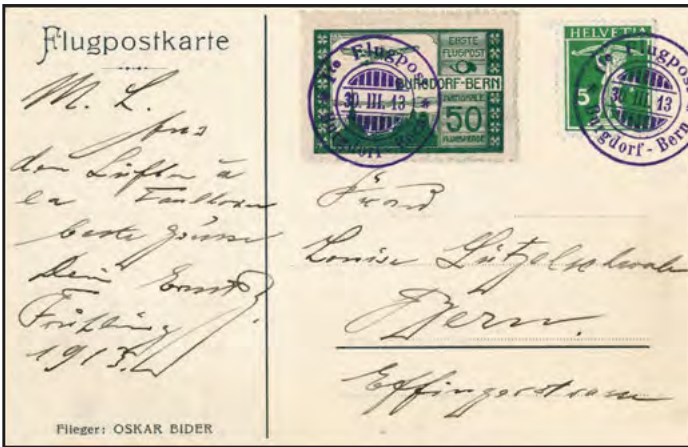 Flugpostkarte
M. L.
Aus
den Lüften à
la
beste Grüsse
Dein Ernst
Frühling
1913.
Flieger: OSKAR BIDER
ERSTE
FLUGPOST
BURGDORF-BERN
50
HELVETIA
5
Flugpost
30. III. 13
Burgdorf - Bern
Flugpost
30. III. 13
Burgdorf - Bern
Frau
Louise
Bern.
Effingerstrasse